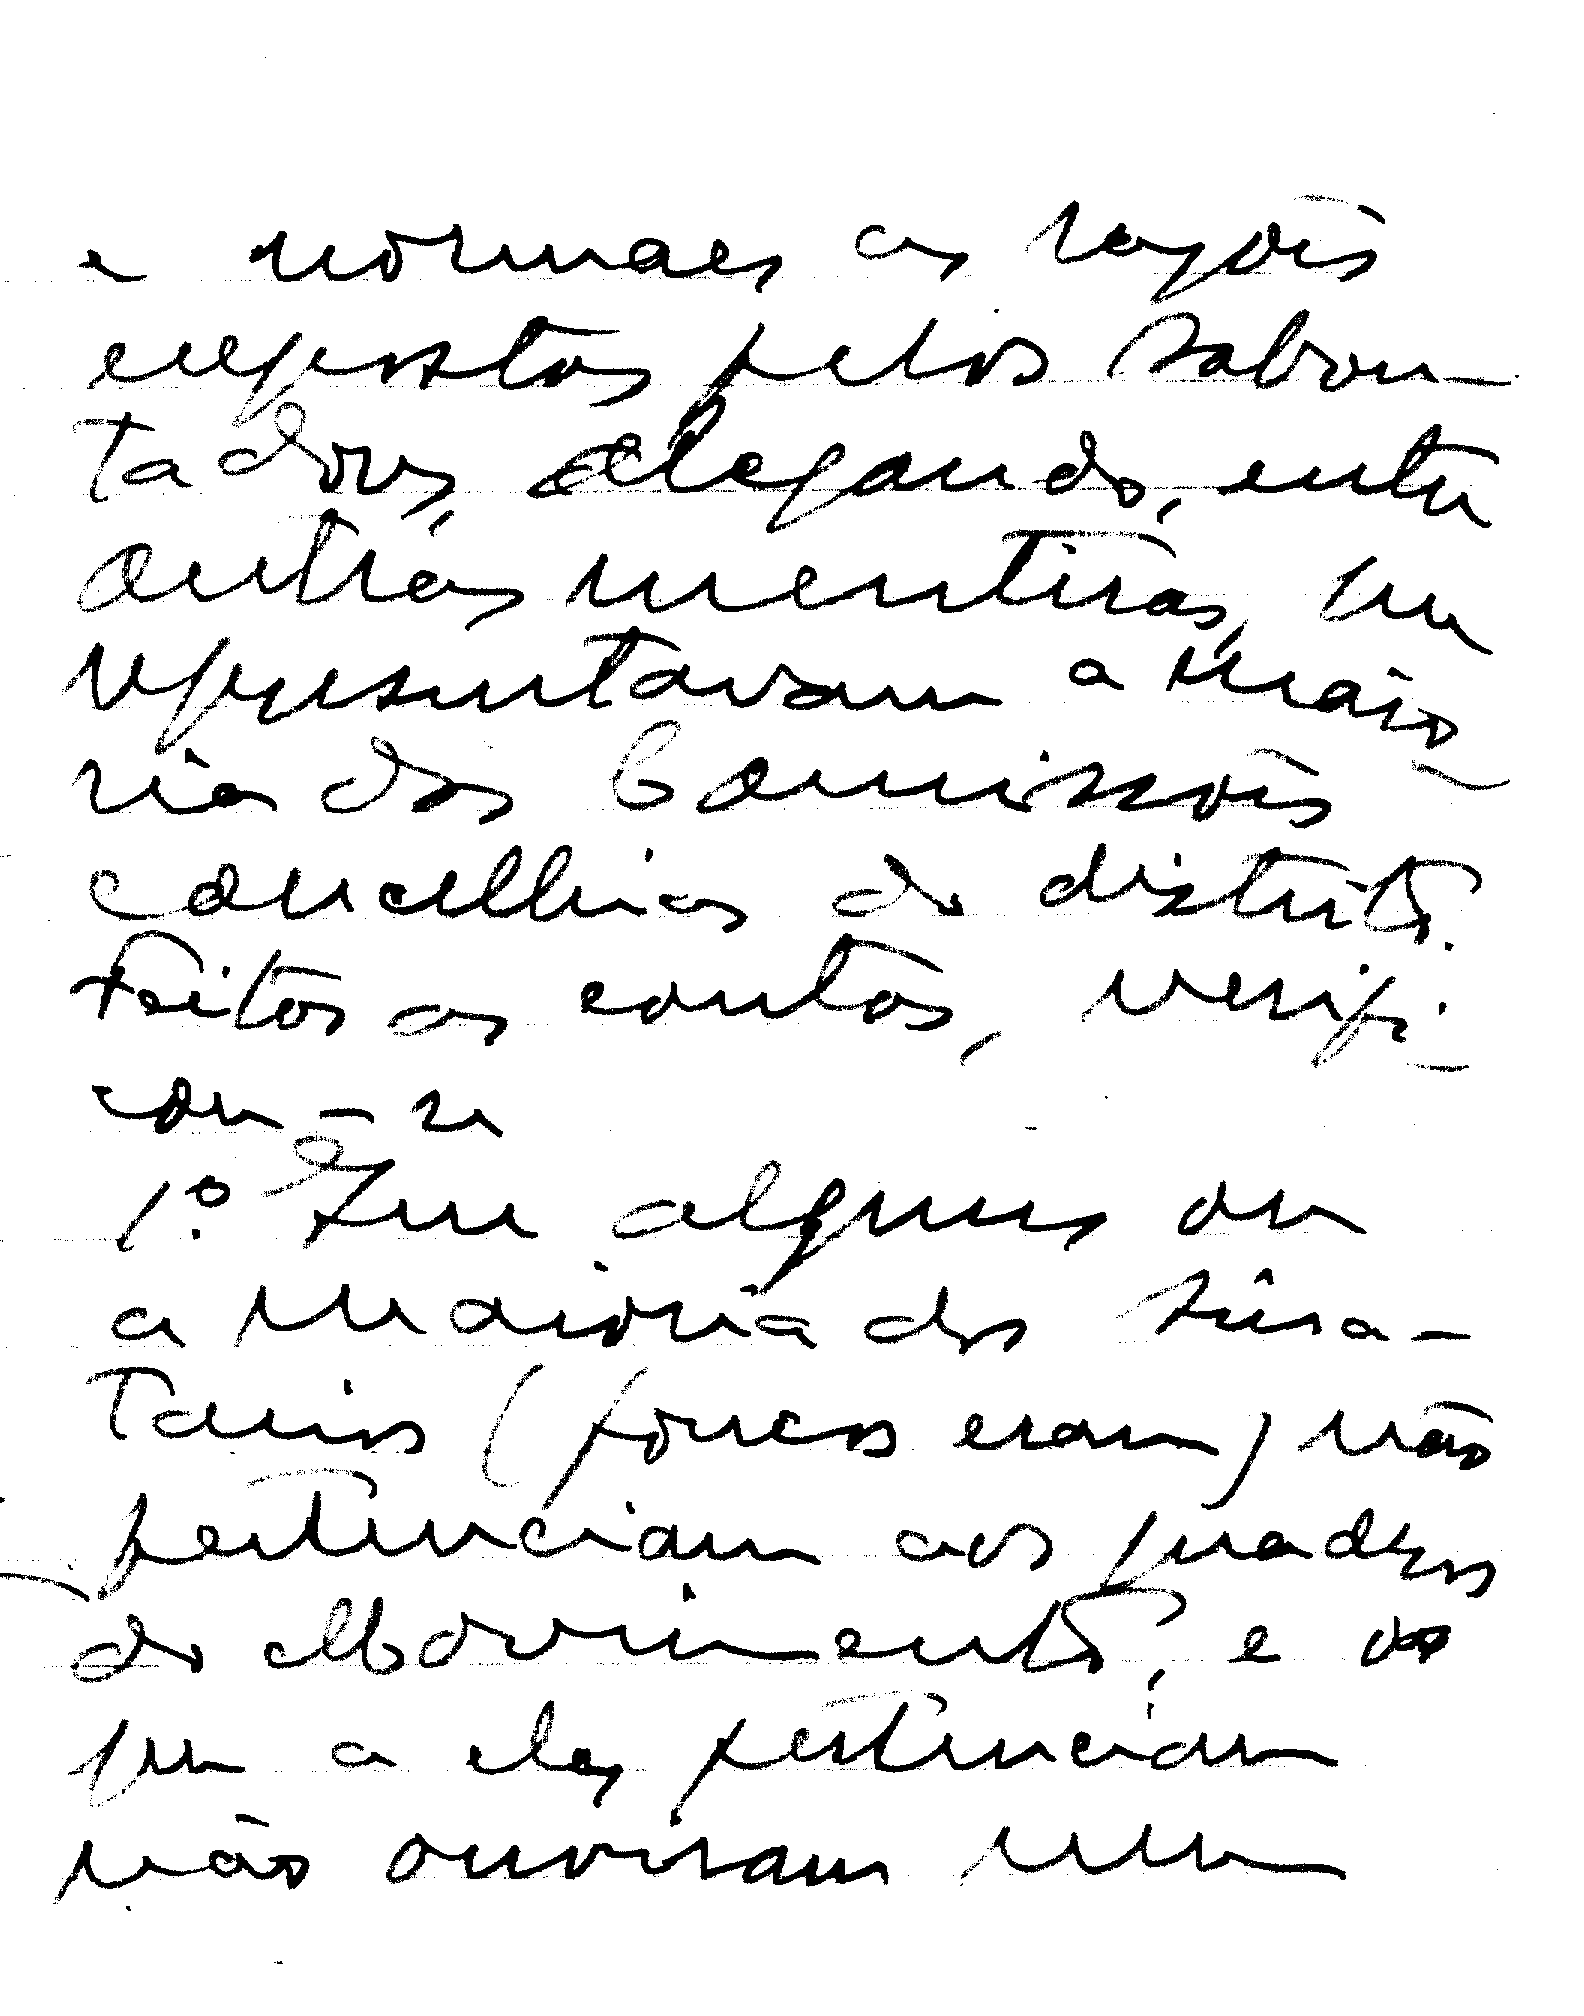 e normaes as razões
expostas pelos sabou-
tadores, alegando, entre
outras mentiras, que
representavam a maio
ria das Comissões
concelhias do distrito.
Feitas as contas, verifi-
cou-se
1.º Que alguns ou
a maioria dos sina-
tarios (poucos eram) não
pertenciam aos quadros
do Movimento, e os
que a eles pertenciam
não ouviram nem